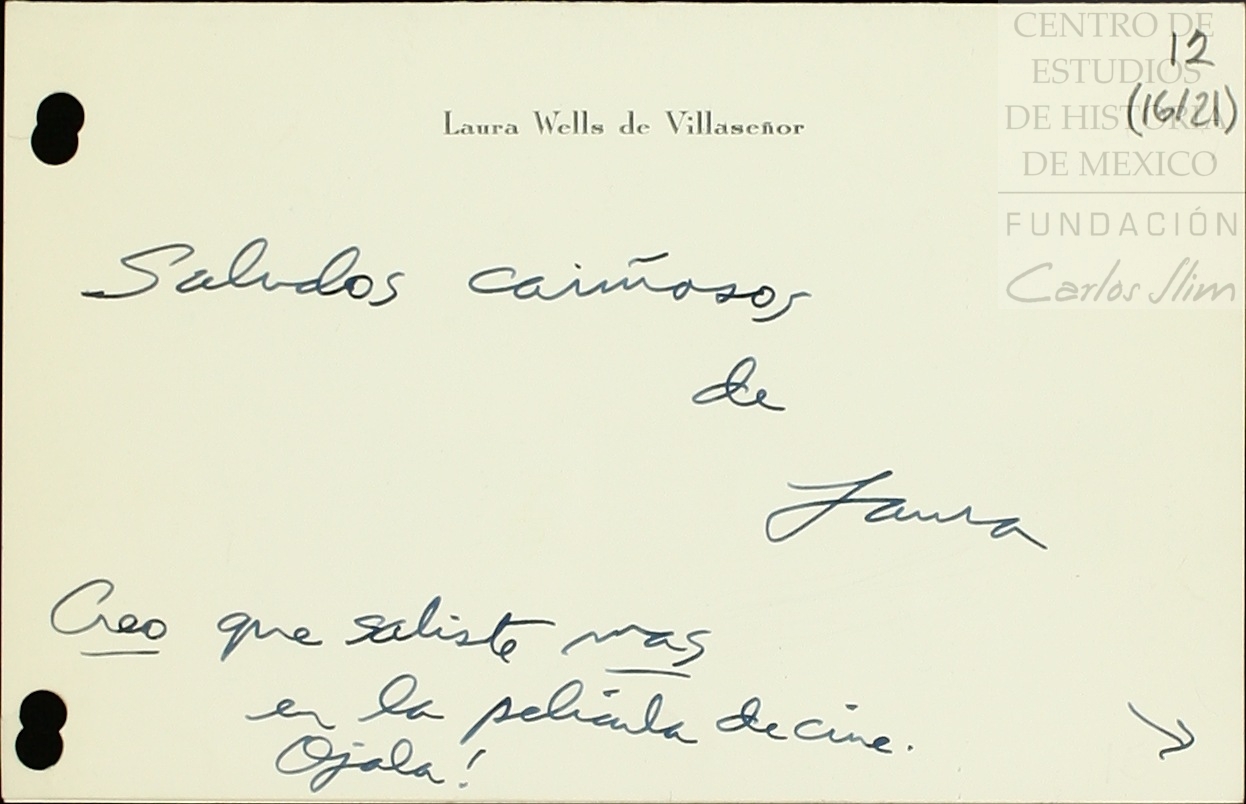 CENTRO DE
ESTUDIOS
DE HISTORIA
DE MEXICO
FUNDACIÓN
Carlos Slim
12
(16/21)
Laura Wells de Villaseñor
Saludos cariñosos
de
Laura
Creo que saliste mas
en la pelicula de cine.
Ojala!